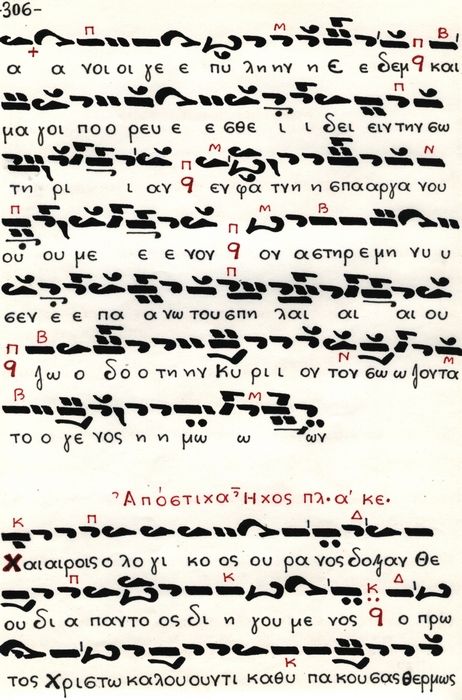 -306-
α α νοι οι γε ε πυ λην ην η ε ε δεμ και
μα γοι πο ο ρευ ε ε εσθε ι ι δει ειν την σω
τη ρι ι αν εν φα τνη η σπααργα νου
ου ου με ε ε νον ον αστηρ ε μη νυ υ
σεν ε ε πα α νω του σπη λαι αι αι ου
ζω ο δο ο την ην Κυ ρι ι ον τον σω ω ζοντα
το ο γε νος η η μω ω ων
Ἀπόστιχα Ἦχος πλ. α' κε.
Χαιαιροις ο λο γι κο ος ου ρα νος δοξαν Θε
ου δι α παντο ος δι η γου με νος ο πρω
τος Χριστω καλουουντι καθυ πακουσας θερμως